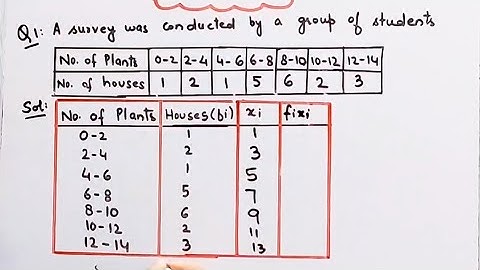 Q1: A survey was conducted by a group of students
No. of Plants 0-2 2-4 4-6 6-8 8-10 10-12 12-14
No. of houses 1 2 1 5 6 2 3
Sol:
No. of Plants Houses(bi) xi fixi
0-2 1 1
2-4 2 3
4-6 1 5
6-8 5 7
8-10 6 9
10-12 2 11
12-14 3 13